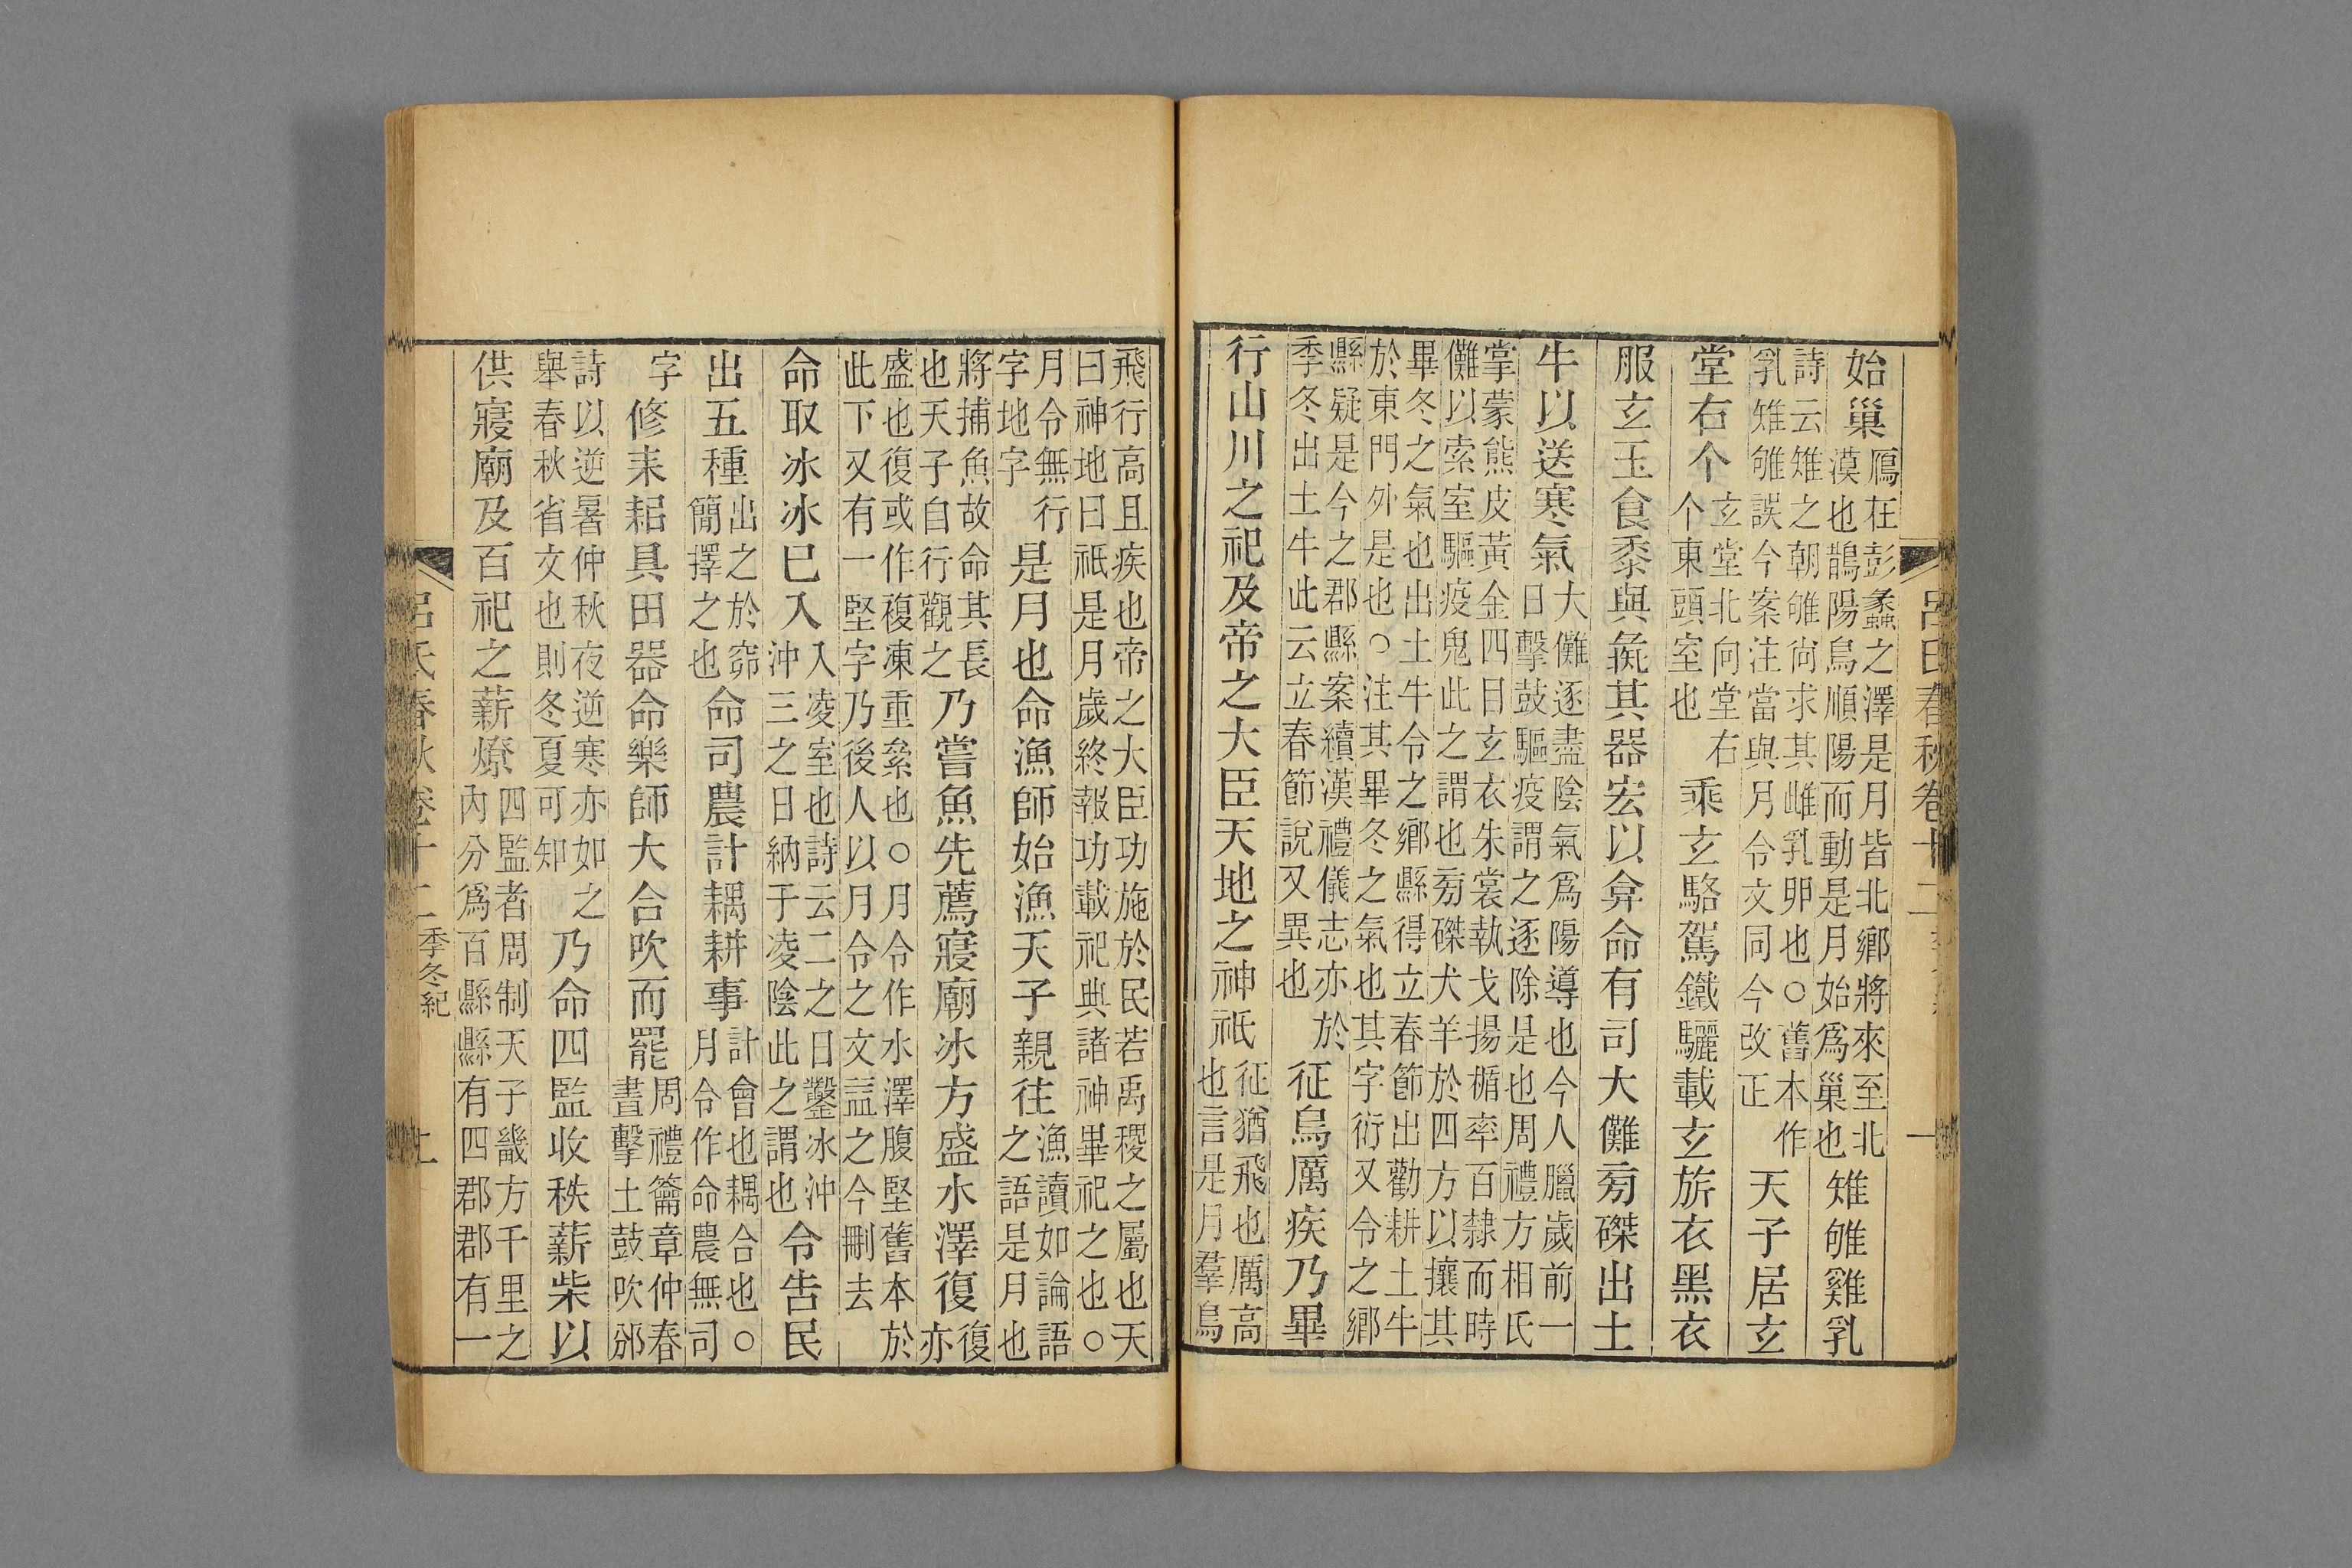 呂氏春秋卷十二 一
始巢鴈在彭蠡之澤是月皆北鄉將來至北漠也鵲陽鳥順陽而動是月始爲巢也雉雊雞乳
詩云雉之朝雊尙求其雌乳卵也○舊本作乳雉雊誤今案注當與月令文同今改正天子居玄
堂右个玄堂北向堂右个東頭室也乘玄駱駕鐵驪載玄旂衣黑衣
服玄玉食黍與彘其器宏以弇命有司大儺旁磔出土
牛以送寒氣大儺逐盡陰氣爲陽導也今人臘歲前一日擊鼓驅疫謂之逐除是也周禮方相氏
掌蒙熊皮黃金四目玄衣朱裳執戈揚楯率百隸而時儺以索室驅疫鬼此之謂也旁磔犬羊於四方以攘其
畢冬之氣也出土牛令之鄉縣得立春節出勸耕土牛於東門外是也○注其畢冬之氣也其字衍又令之鄉
縣疑是今之郡縣案續漢禮儀志亦於季冬出土牛此云立春節說又異也征鳥厲疾乃畢
行山川之祀及帝之大臣天地之神祇征猶飛也厲高也言是月羣鳥
飛行高且疾也帝之大臣功施於民若禹稷之屬也天曰神地曰祇是月歲終報功載祀典諸神畢祀之也○
月令無行字地字是月也命漁師始漁天子親往漁讀如論語之語是月也
將捕魚故命其長也天子自行觀之乃嘗魚先薦寢廟冰方盛水澤復復亦
盛也復或作複凍重絫也○月令作水澤腹堅舊本於此下又有一堅字乃後人以月令之文益之今刪去
命取冰冰已入入凌室也詩云二之日鑿冰沖沖三之日納于凌陰此之謂也令告民
出五種出之於窌簡擇之也命司農計耦耕事計會也耦合也○月令作命農無司
字修耒耜具田器命樂師大合吹而罷周禮籥章仲春晝擊土鼓吹邠
詩以逆暑仲秋夜逆寒亦如之舉春秋省文也則冬夏可知乃命四監收秩薪柴以
供寢廟及百祀之薪燎四監者周制天子畿方千里之內分爲百縣縣有四郡郡有一
呂氏春秋卷十二季冬紀 二